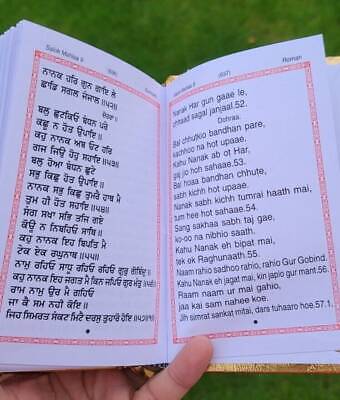 Salok Mohlaa 9
(696)
ਨਾਨਕ ਹਰਿ ਗੁਨ ਗਾਇ ਲੇ
ਛਾਡਿ ਸਗਲ ਜੰਜਾਲ ॥੫੨॥
ਦੋਹਰਾ॥
ਬਲੁ ਛੁਟਕਿਓ ਬੰਧਨ ਪਰੇ
ਕਛੂ ਨ ਹੋਤ ਉਪਾਇ॥
ਕਹੁ ਨਾਨਕ ਅਬ ਓਟ ਹਰਿ
ਗਜ ਜਿਉ ਹੋਹੁ ਸਹਾਇ॥੫੩॥
ਬਲੁ ਹੋਆ ਬੰਧਨ ਛੁਟੇ
ਸਭੁ ਕਿਛੁ ਹੋਤ ਉਪਾਇ॥
ਨਾਨਕ ਸਭੁ ਕਿਛੁ ਤੁਮਰੈ ਹਾਥ ਮੈ
ਤੁਮ ਹੀ ਹੋਤ ਸਹਾਇ॥੫੪॥
ਸੰਗ ਸਖਾ ਸਭਿ ਤਜਿ ਗਏ
ਕੋਊ ਨ ਨਿਬਹਿਓ ਸਾਥਿ॥
ਕਹੁ ਨਾਨਕ ਇਹ ਬਿਪਤਿ ਮੈ
ਟੇਕ ਏਕ ਰਘੁਨਾਥ॥੫੫॥
ਨਾਮੁ ਰਹਿਓ ਸਾਧੂ ਰਹਿਓ ਰਹਿਓ ਗੁਰੁ ਗੋਬਿੰਦੁ॥
ਕਹੁ ਨਾਨਕ ਇਹ ਜਗਤ ਮੈ ਕਿਨ ਜਪਿਓ ਗੁਰ ਮੰਤੁ॥੫੬॥
ਰਾਮ ਨਾਮੁ ਉਰ ਮੈ ਗਹਿਓ
ਜਾ ਕੈ ਸਮ ਨਹੀ ਕੋਇ॥
ਜਿਹ ਸਿਮਰਤ ਸੰਕਟ ਮਿਟੈ ਦਰਸੁ ਤੁਹਾਰੋ ਹੋਇ॥੫੭॥੧॥
Salok Mohlaa 9
(697)
Roman
Nanak Har gun gaae le,
chhaad sagal janjaal.52.
Dohraa.
Bal chhutkio bandhan pare,
kachhoo na hot upaae.
Kahu Nanak ab ot Har,
gaj jio hoh sahaae.53.
Bal hoaa bandhan chhute,
sabh kichh hot upaae.
Nanak sabh kichh tumrai haath mai,
tum hee hot sahaae.54.
Sang sakhaa sabh taj gae,
ko-oo na nibhio saath.
Kahu Nanak eh bipat mai,
tek ek Raghunaath.55.
Naam rahio sadhoo rahio, rahio Gur Gobind.
Kahu Nanak eh jagat mai, kin japio gur mant.56.
Raam naam ur mai gahio,
jaa kai sam nahee koe.
Jih simrat sankat mitai, dars tuhaaro hoe.57.1.